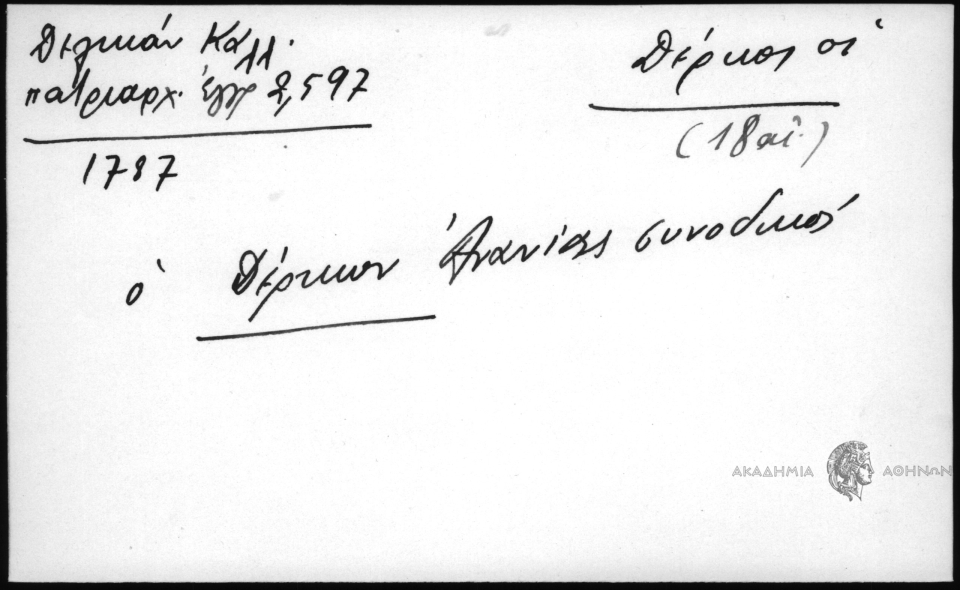 Δελικάν Καλλ.
πατριαρχ. έγγρ 2,597
1787
Δέρκοι οἱ
(18 αἰ.)
ὁ Δέρκων Ἀνανίας συνοδικός
ΑΚΑΔΗΜΙΑ ΑΘΗΝΩΝ